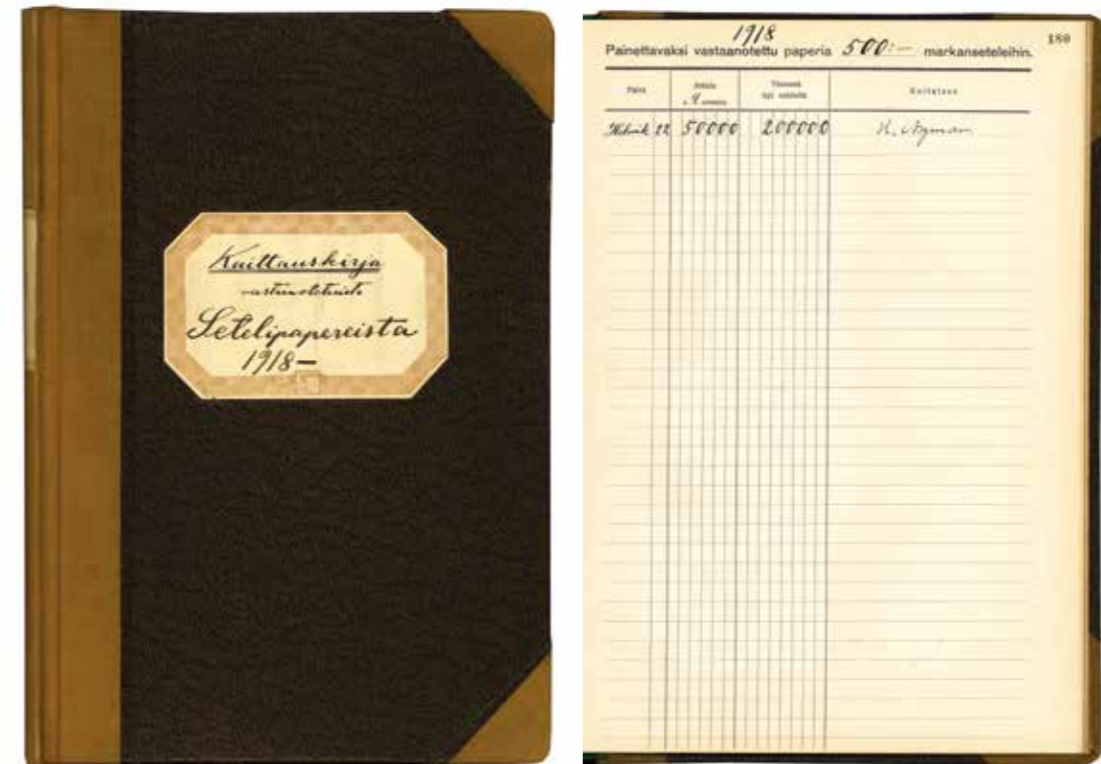 Kuittauskirja
vastaanotetuista
Setelipapereista
1918—
1918
180
Painettavaksi vastaanotettu paperia 500:— markanseteleihin.
Päivä
Arkkia
Yhteensä
kpl. seteleitä
Kuitataan
22 50000 200000